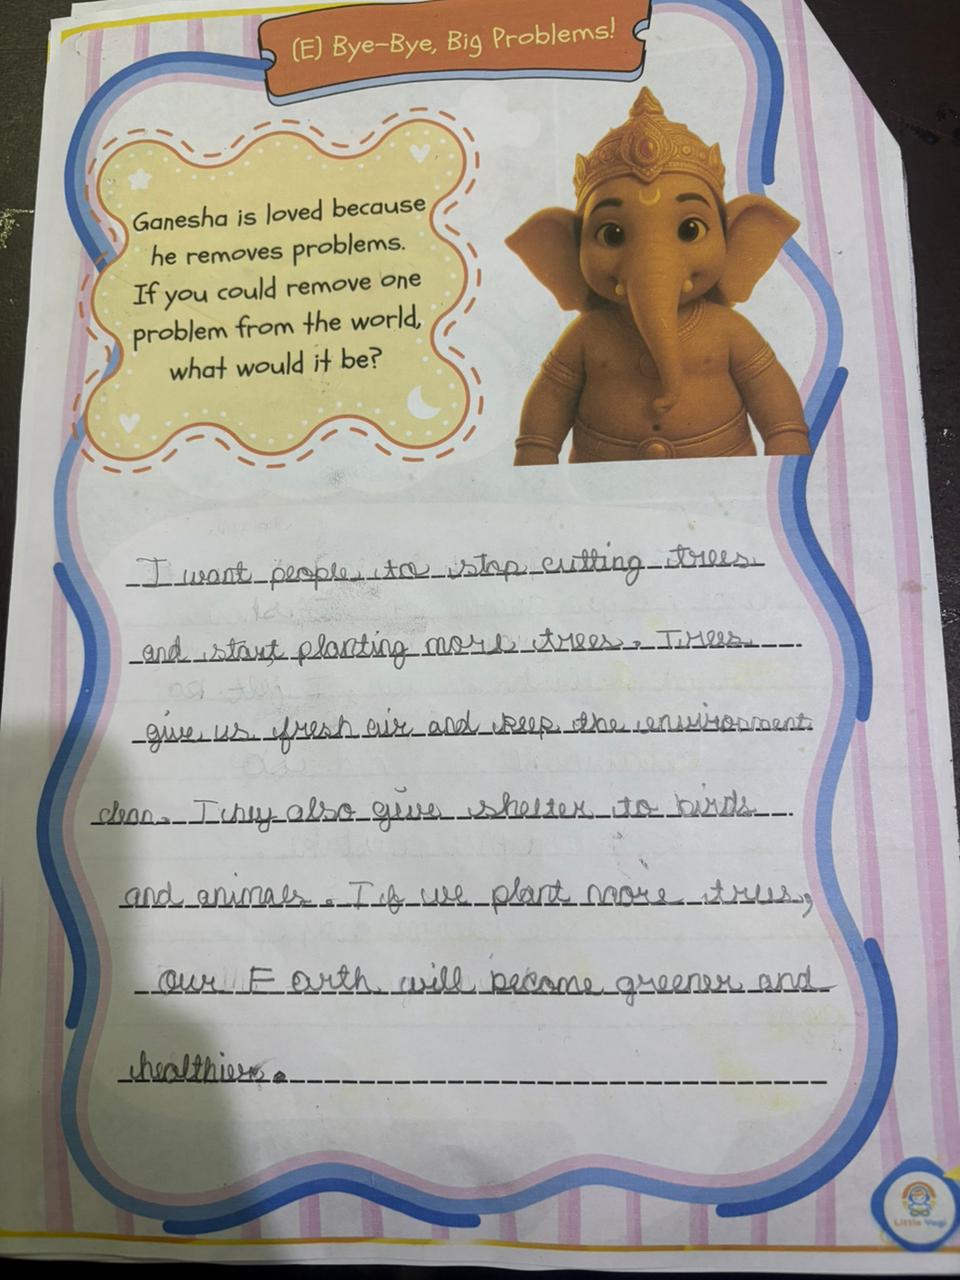 (E) Bye-Bye, Big Problems!
Ganesha is loved because
he removes problems.
If you could remove one
problem from the world,
what would it be?
I want people to stop cutting trees
and start planting more trees. Trees
give us fresh air and keep the environment
clean. They also give shelter to birds
and animals. If we plant more trees,
our Earth will become greener and
healthier.
Little Yogi